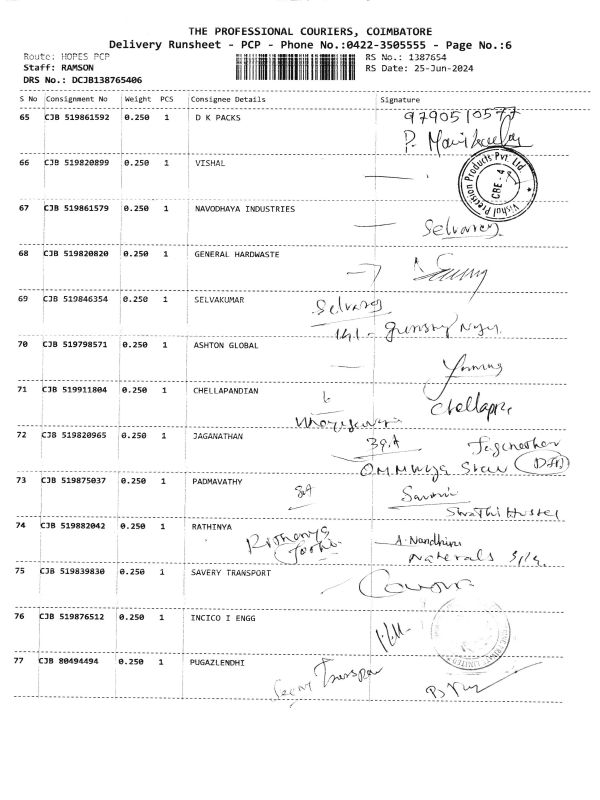 THE PROFESSIONAL COURIERS, COIMBATORE
Delivery Runsheet - PCP - Phone No.:0422-3505555 - Page No.:6
Route: HOPES PCP
RS No.: 1387654
Staff: RAMSON
RS Date: 25-Jun-2024
DRS No.: DCJB138765406
S No Consignment No Weight PCS Consignee Details Signature
65 CJB 519861592 0.250 1 D K PACKS
9790510577
66 CJB 519820899 0.250 1 VISHAL
Vishal Precision Products Pvt. Ltd.
CBE - 4
67 CJB 519861579 0.250 1 NAVODHAYA INDUSTRIES
Selvaraj
68 CJB 519820820 0.250 1 GENERAL HARDWASTE
69 CJB 519846354 0.250 1 SELVAKUMAR
Selvaraj
70 CJB 519798571 0.250 1 ASHTON GLOBAL
71 CJB 519911804 0.250 1 CHELLAPANDIAN
Chellapa
72 CJB 519820965 0.250 1 JAGANATHAN
39.A Jaganathan
73 CJB 519875037 0.250 1 PADMAVATHY
Swathi Hostel
74 CJB 519882042 0.250 1 RATHINYA
A. Nandhini
Naterals
75 CJB 519839830 0.250 1 SAVERY TRANSPORT
76 CJB 519876512 0.250 1 INCICO I ENGG
77 CJB 80494494 0.250 1 PUGAZLENDHI